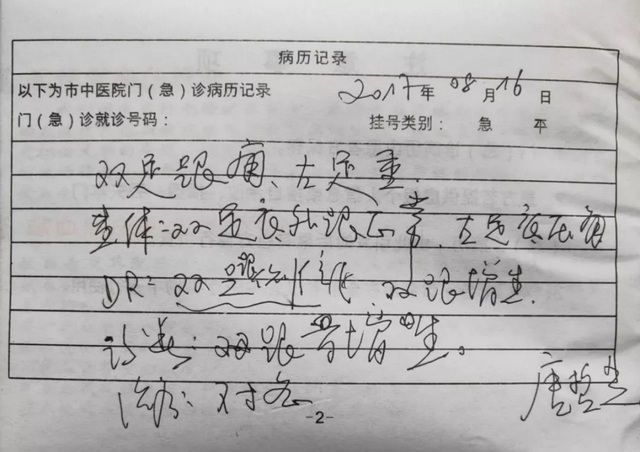 病历记录
以下为市中医院门（急）诊病历记录 2017年08月16日
门（急）诊就诊号码： 挂号类别： 急 平
双足跟痛、左足重.
查体：双足底 跟 常. 左足底压痛
DR：双 双跟增生.
诊断：双跟骨增生。
治疗：对症
-2-